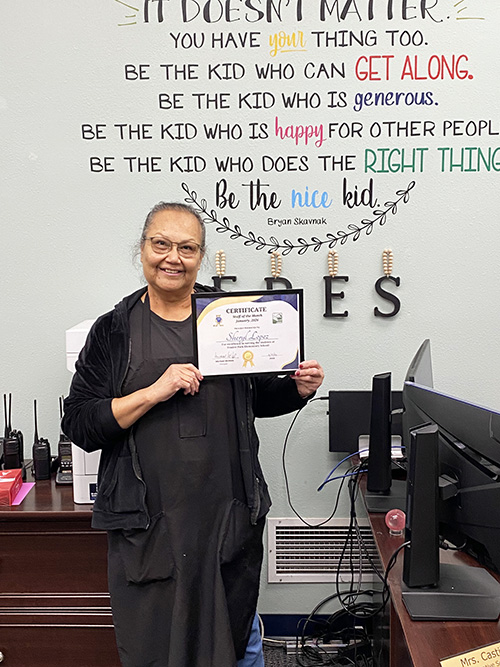 IT DOESN'T MATTER.
YOU HAVE your THING TOO.
BE THE KID WHO CAN GET ALONG.
BE THE KID WHO IS generous.
BE THE KID WHO IS happy FOR OTHER PEOPL
BE THE KID WHO DOES THE RIGHT THING
Be the nice kid.
Bryan Skavnak
EDES
CERTIFICATE
Staff of the Month
January, 2026
Sheryl Lopez
Mrs. Cast